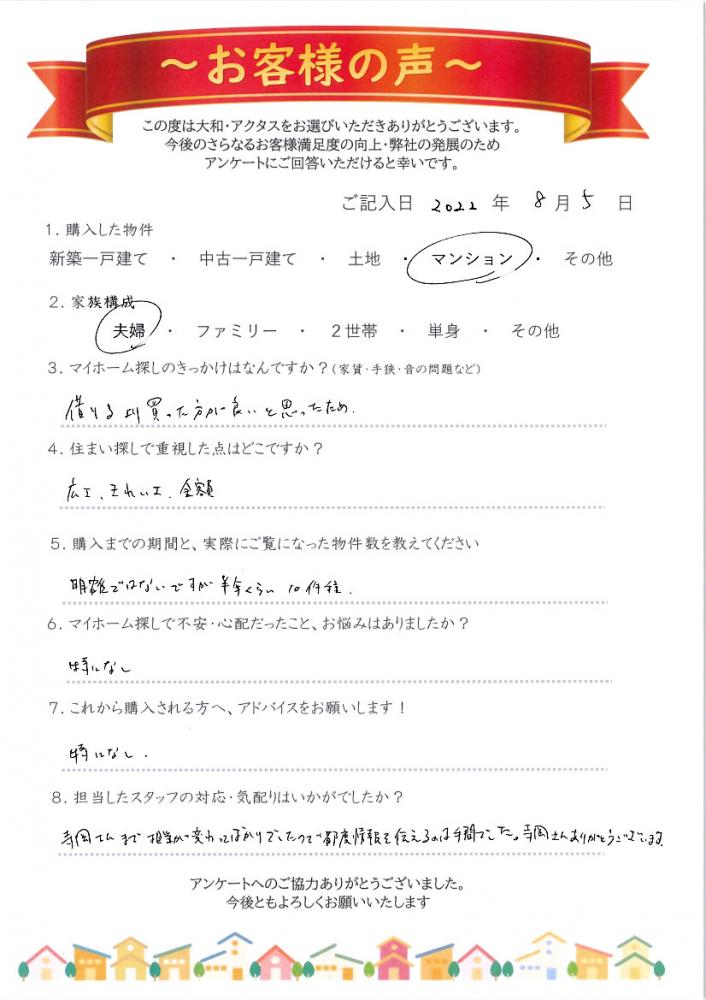 ～お客様の声～
この度は大和・アクタスをお選びいただきありがとうございます。
今後のさらなるお客様満足度の向上・弊社の発展のため
アンケートにご回答いただけると幸いです。
ご記入日 2022 年 8 月 5 日
1. 購入した物件
新築一戸建て ・ 中古一戸建て ・ 土地 ・ マンション ・ その他
2. 家族構成
夫婦 ・ ファミリー ・ 2世帯 ・ 単身 ・ その他
3. マイホーム探しのきっかけはなんですか？（家賃・手狭・音の問題など）
借りるより買った方が良いと思ったため.
4. 住まい探しで重視した点はどこですか？
広さ、きれいさ、金額
5. 購入までの期間と、実際にご覧になった物件数を教えてください
明確ではないですが半年くらい 10件程.
6. マイホーム探しで不安・心配だったこと、お悩みはありましたか？
特になし
7. これから購入される方へ、アドバイスをお願いします！
特になし.
8. 担当したスタッフの対応・気配りはいかがでしたか？
寺岡さんまで担当が変わってばかりでしたので都度情報を伝えるのは手間でした。寺岡さんありがとうございます.
アンケートへのご協力ありがとうございました。
今後ともよろしくお願いいたします